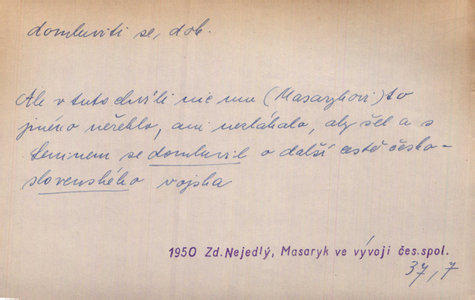 domluviti se, dok.
Ale v tuto chvíli nic mu (Masarykovi) to
jméno neřeklo, ani nezlákalo, aby šel a s
Leninem se domluvil o další cestě česko-
slovenského vojska
1950 Zd.Nejedlý, Masaryk ve vývoji čes.spol.
37, 7